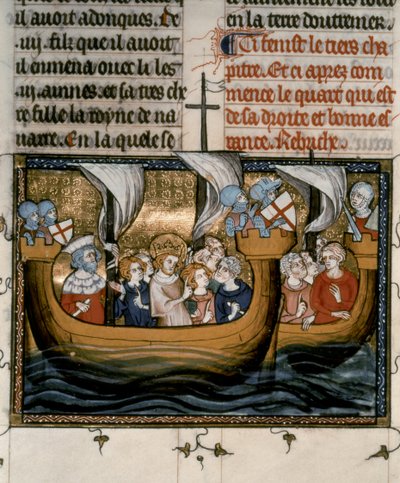 il auoit adonques. De
.iiij. filz que il auoit
il enmena ouec li les
.iij. ainnes. et sa tres che
re fille la royne de na
uarre. En la quele se
en la terre doutremer
Ci fenist le tiers cha
pitre. Et ci aprez com
mence le quart qui est
de sa droite et bonne es
rance. Rebriche.